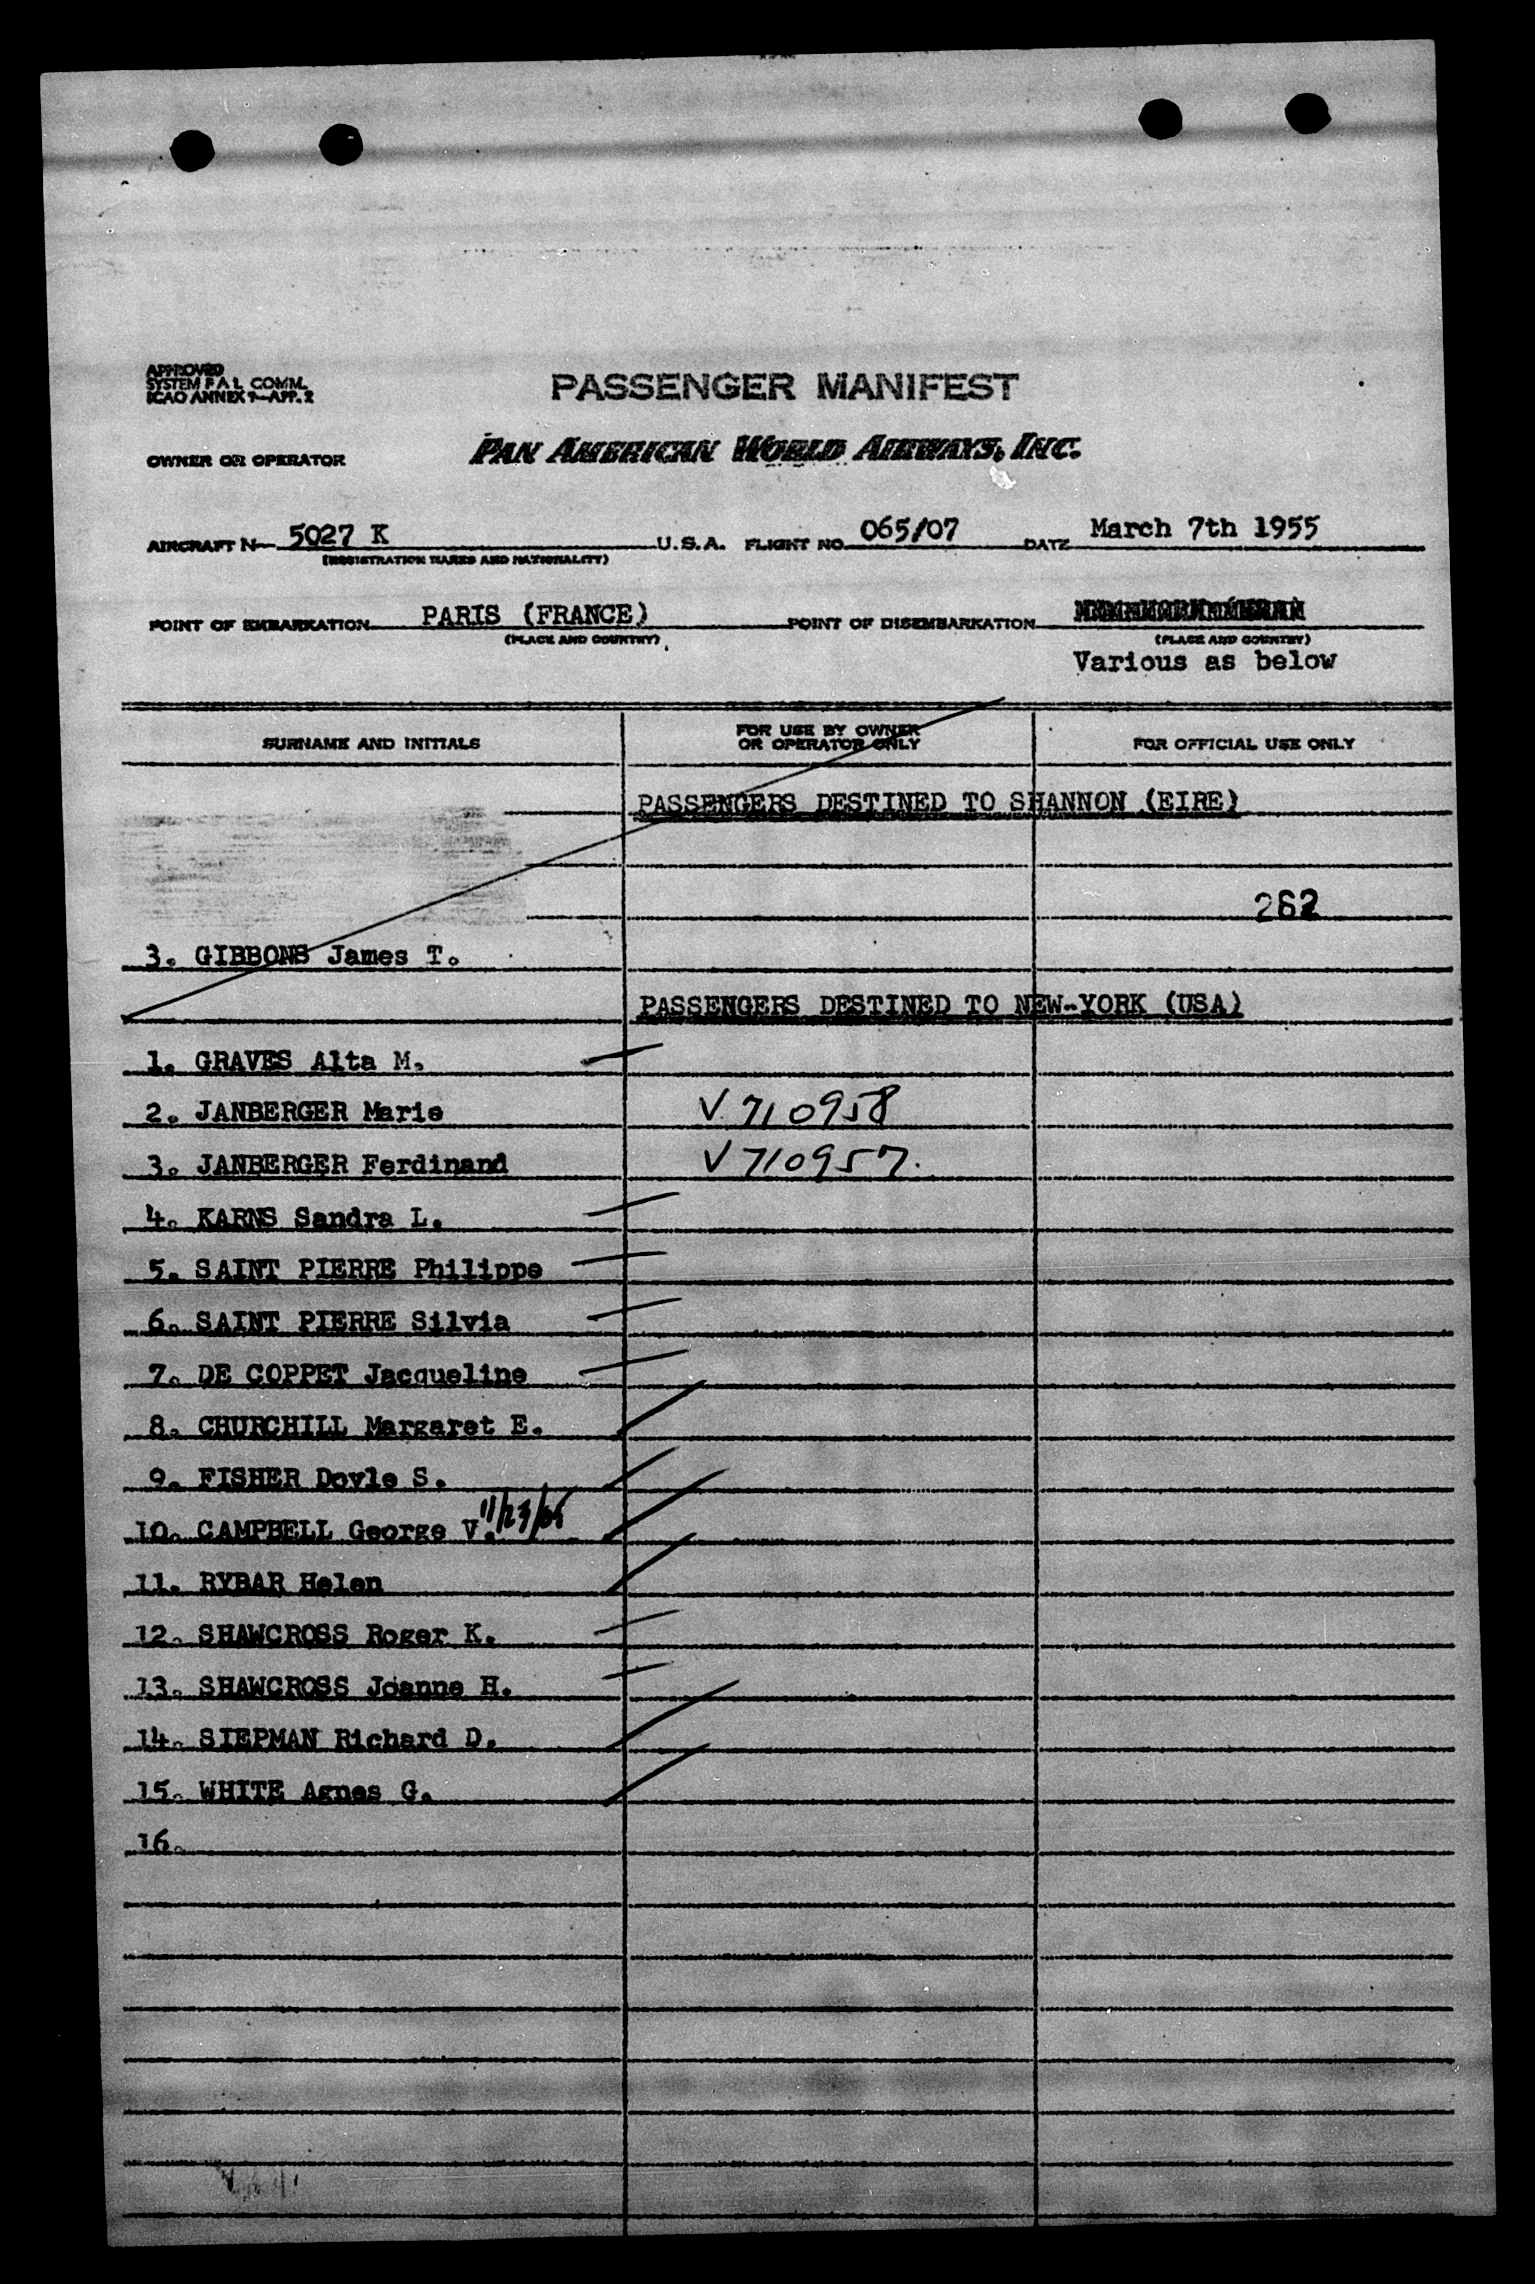 APPROVED
SYSTEM F A L COMM.
ICAO ANNEX 9—APP. 2
PASSENGER MANIFEST
OWNER OR OPERATOR PAN AMERICAN WORLD AIRWAYS, INC.
AIRCRAFT N— 5027 K U.S.A. FLIGHT NO. 065/07 DATE March 7th 1955
(REGISTRATION MARKS AND NATIONALITY)
POINT OF EMBARKATION PARIS (FRANCE) POINT OF DISEMBARKATION
(PLACE AND COUNTRY) (PLACE AND COUNTRY)
Various as below
SURNAME AND INITIALS FOR USE BY OWNER OR OPERATOR ONLY FOR OFFICIAL USE ONLY
PASSENGERS DESTINED TO SHANNON (EIRE)
262
3. GIBBONS James T.
PASSENGERS DESTINED TO NEW-YORK (USA)
1. GRAVES Alta M.
2. JANBERGER Marie V 710958
3. JANBERGER Ferdinand V 710957.
4. KARNS Sandra L.
5. SAINT PIERRE Philippe
6. SAINT PIERRE Silvia
7. DE COPPET Jacqueline
8. CHURCHILL Margaret E.
9. FISHER Doyle S.
10. CAMPBELL George V.
11. RYBAR Helen
12. SHAWCROSS Roger K.
13. SHAWCROSS Joanne H.
14. SIEPMAN Richard D.
15. WHITE Agnes G.
16.